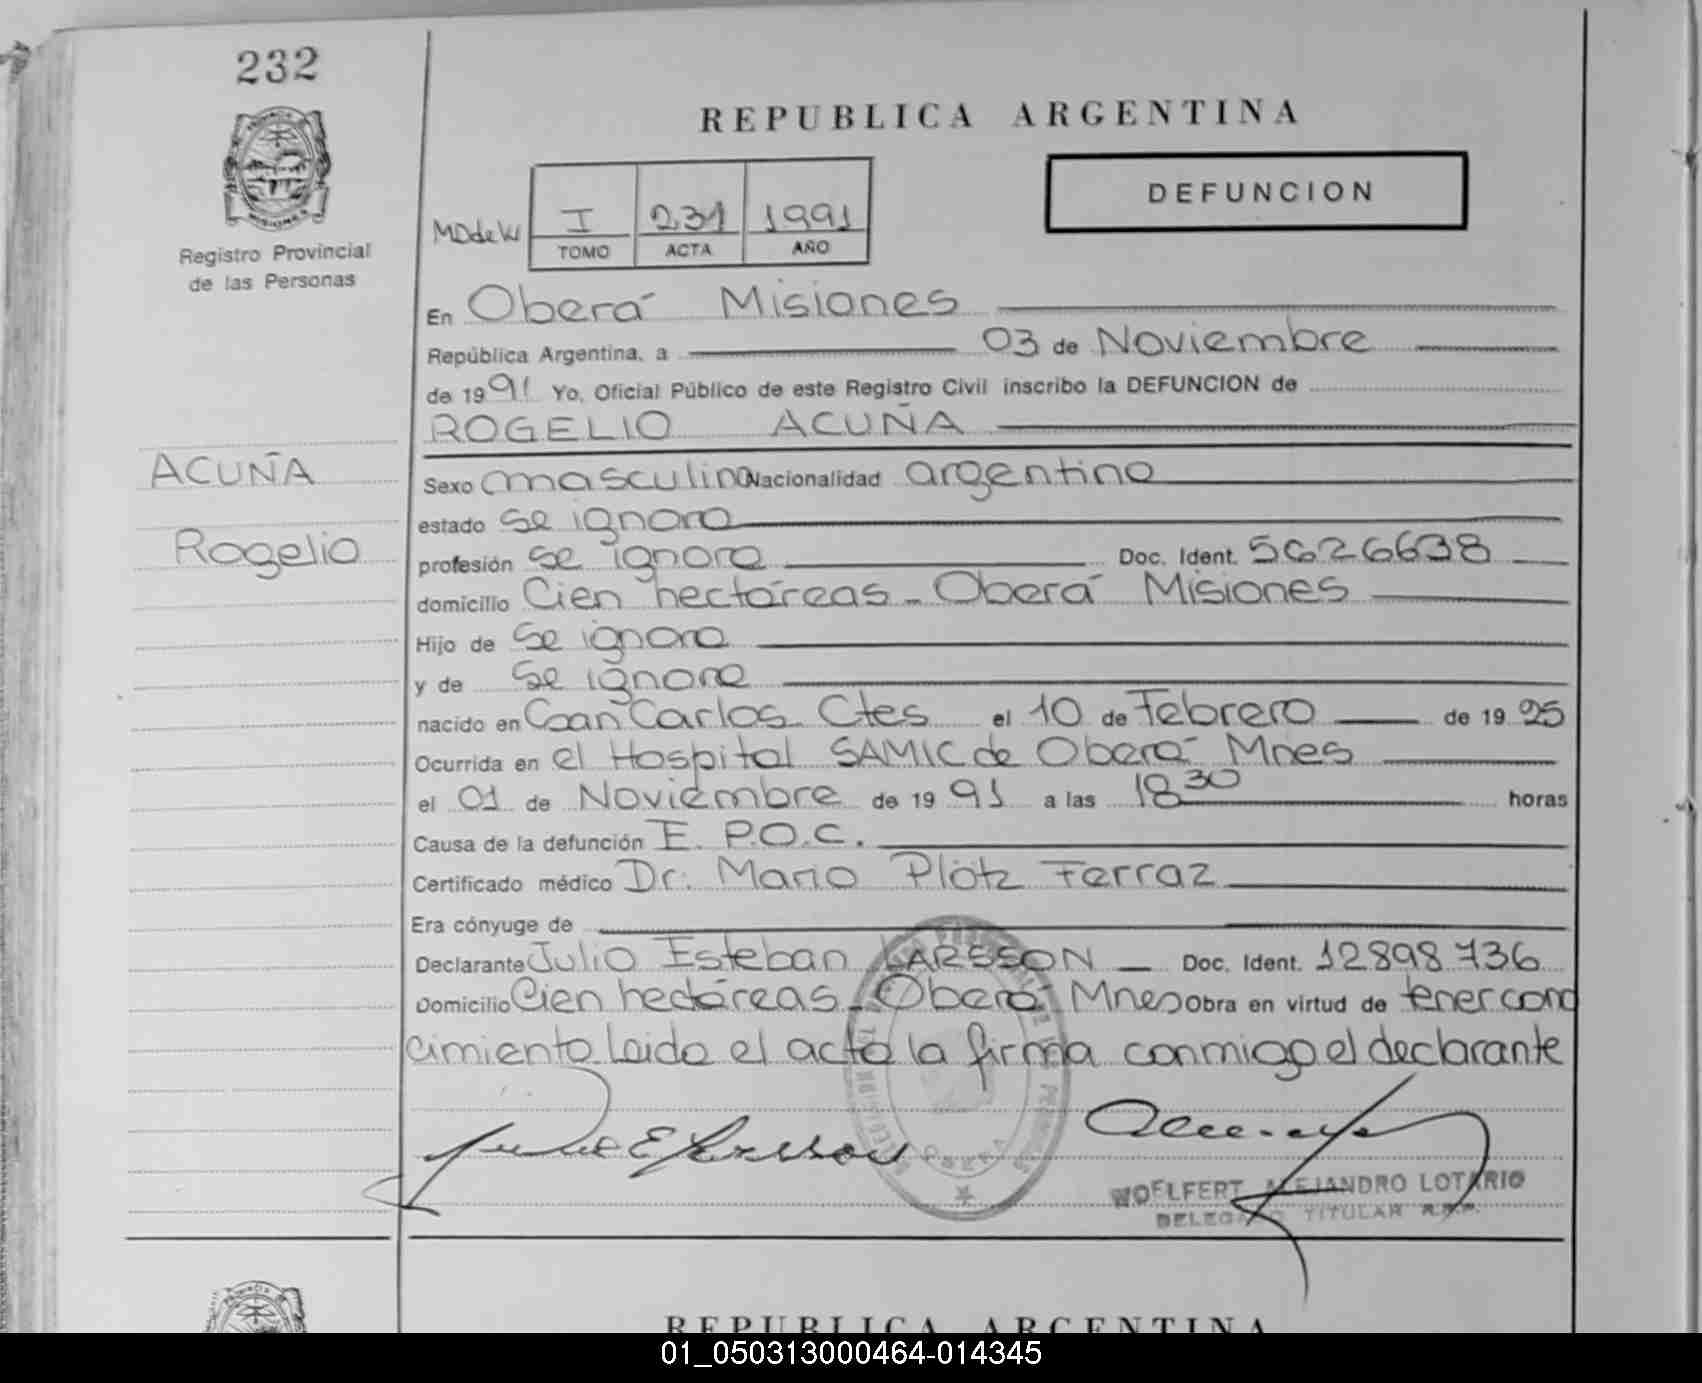 232
REPUBLICA ARGENTINA
DEFUNCION
I 231 1991
TOMO ACTA AÑO
Registro Provincial
de las Personas
En Oberá Misiones
República Argentina, a 03 de Noviembre
de 1991 Yo, Oficial Público de este Registro Civil inscribo la DEFUNCION de
ROGELIO ACUÑA
ACUÑA
Rogelio
Sexo masculino Nacionalidad argentino
estado se ignora
profesión se ignora Doc. Ident. 5626638
domicilio Cien hectáreas - Oberá Misiones
Hijo de Se ignora
y de Se ignora
nacido en San Carlos Ctes el 10 de Febrero de 1925
Ocurrida en el Hospital SAMIC de Oberá Mnes
el 01 de Noviembre de 1991 a las 18 30 horas
Causa de la defunción E. P.O.C.
Certificado médico Dr. Mario Plötz Ferraz
Era cónyuge de
Declarante Julio Esteban LARSSON Doc. Ident. 12898736
Domicilio Cien hectáreas - Oberá Mnes obra en virtud de tener cono
cimiento. Leida el acta la firma conmigo el declarante
WOELFERT ALEJANDRO LOTARIO
DELEGADO TITULAR R.P.P.
REPUBLICA ARGENTINA
01_050313000464-014345